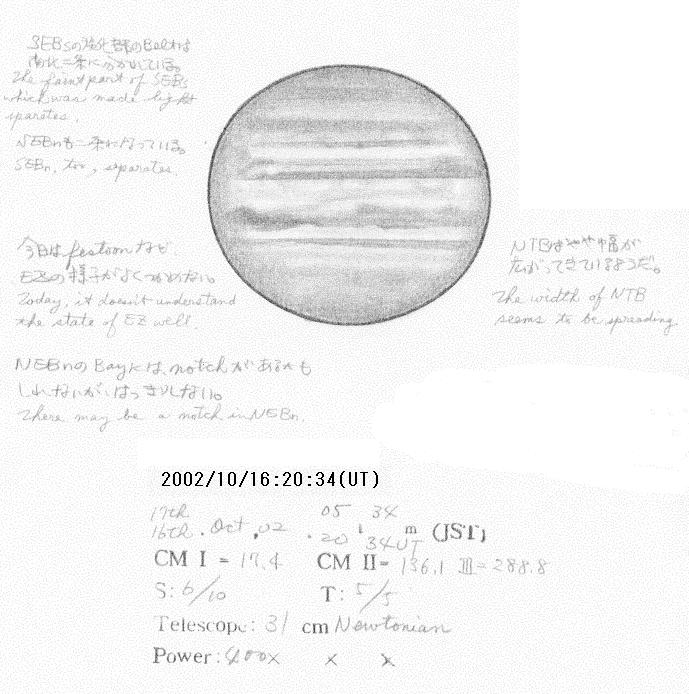 SEBsの強化部のBeltは
南北二条に分かれている。
the faint part of SEBs
which was made light
sparates.
NEBnも二条になっている。
SEBn, too, separates.
今日はfestoonなど
EZの様子がよくつかめない。
Today, it doesn't understand
the state of EZ well.
NTBはやや幅が
広がってきているようだ。
the width of NTB
seems to be spreading
NEBnのBayには、notchがあるかも
しれないが、はっきりしない。
There may be a notch in NEBn.
2002/10/16:20:34(UT)
17th 05 34
16th. Oct, 02 . 20 34UT m (JST)
CM I = 17.4 CM II= 136.1 III=288.8
S: 6/10 T: 5/5
Telescope: 31 cm Newtonian
Power: 400x x x